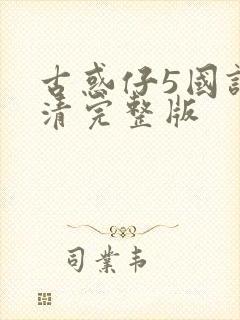 古惑仔5國
清完整版
司業韦